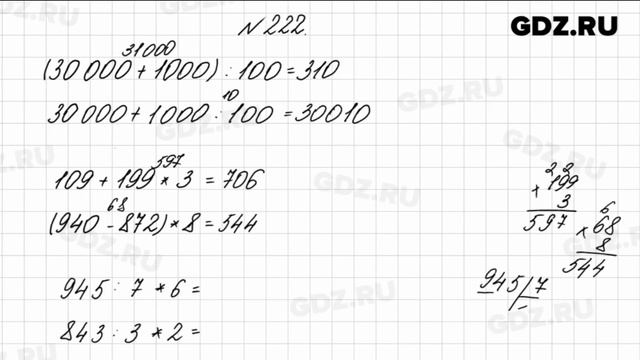 GDZ.RU
№ 222.
31000
(30 000 + 1000) : 100 = 310
10
30 000 + 1000 : 100 = 30010
597
109 + 199 * 3 = 706
68
(940 - 872) * 8 = 544
945 : 7 * 6 =
843 : 3 * 2 =
2 2
× 199
3
597
6
× 68
8
544
945 | 7